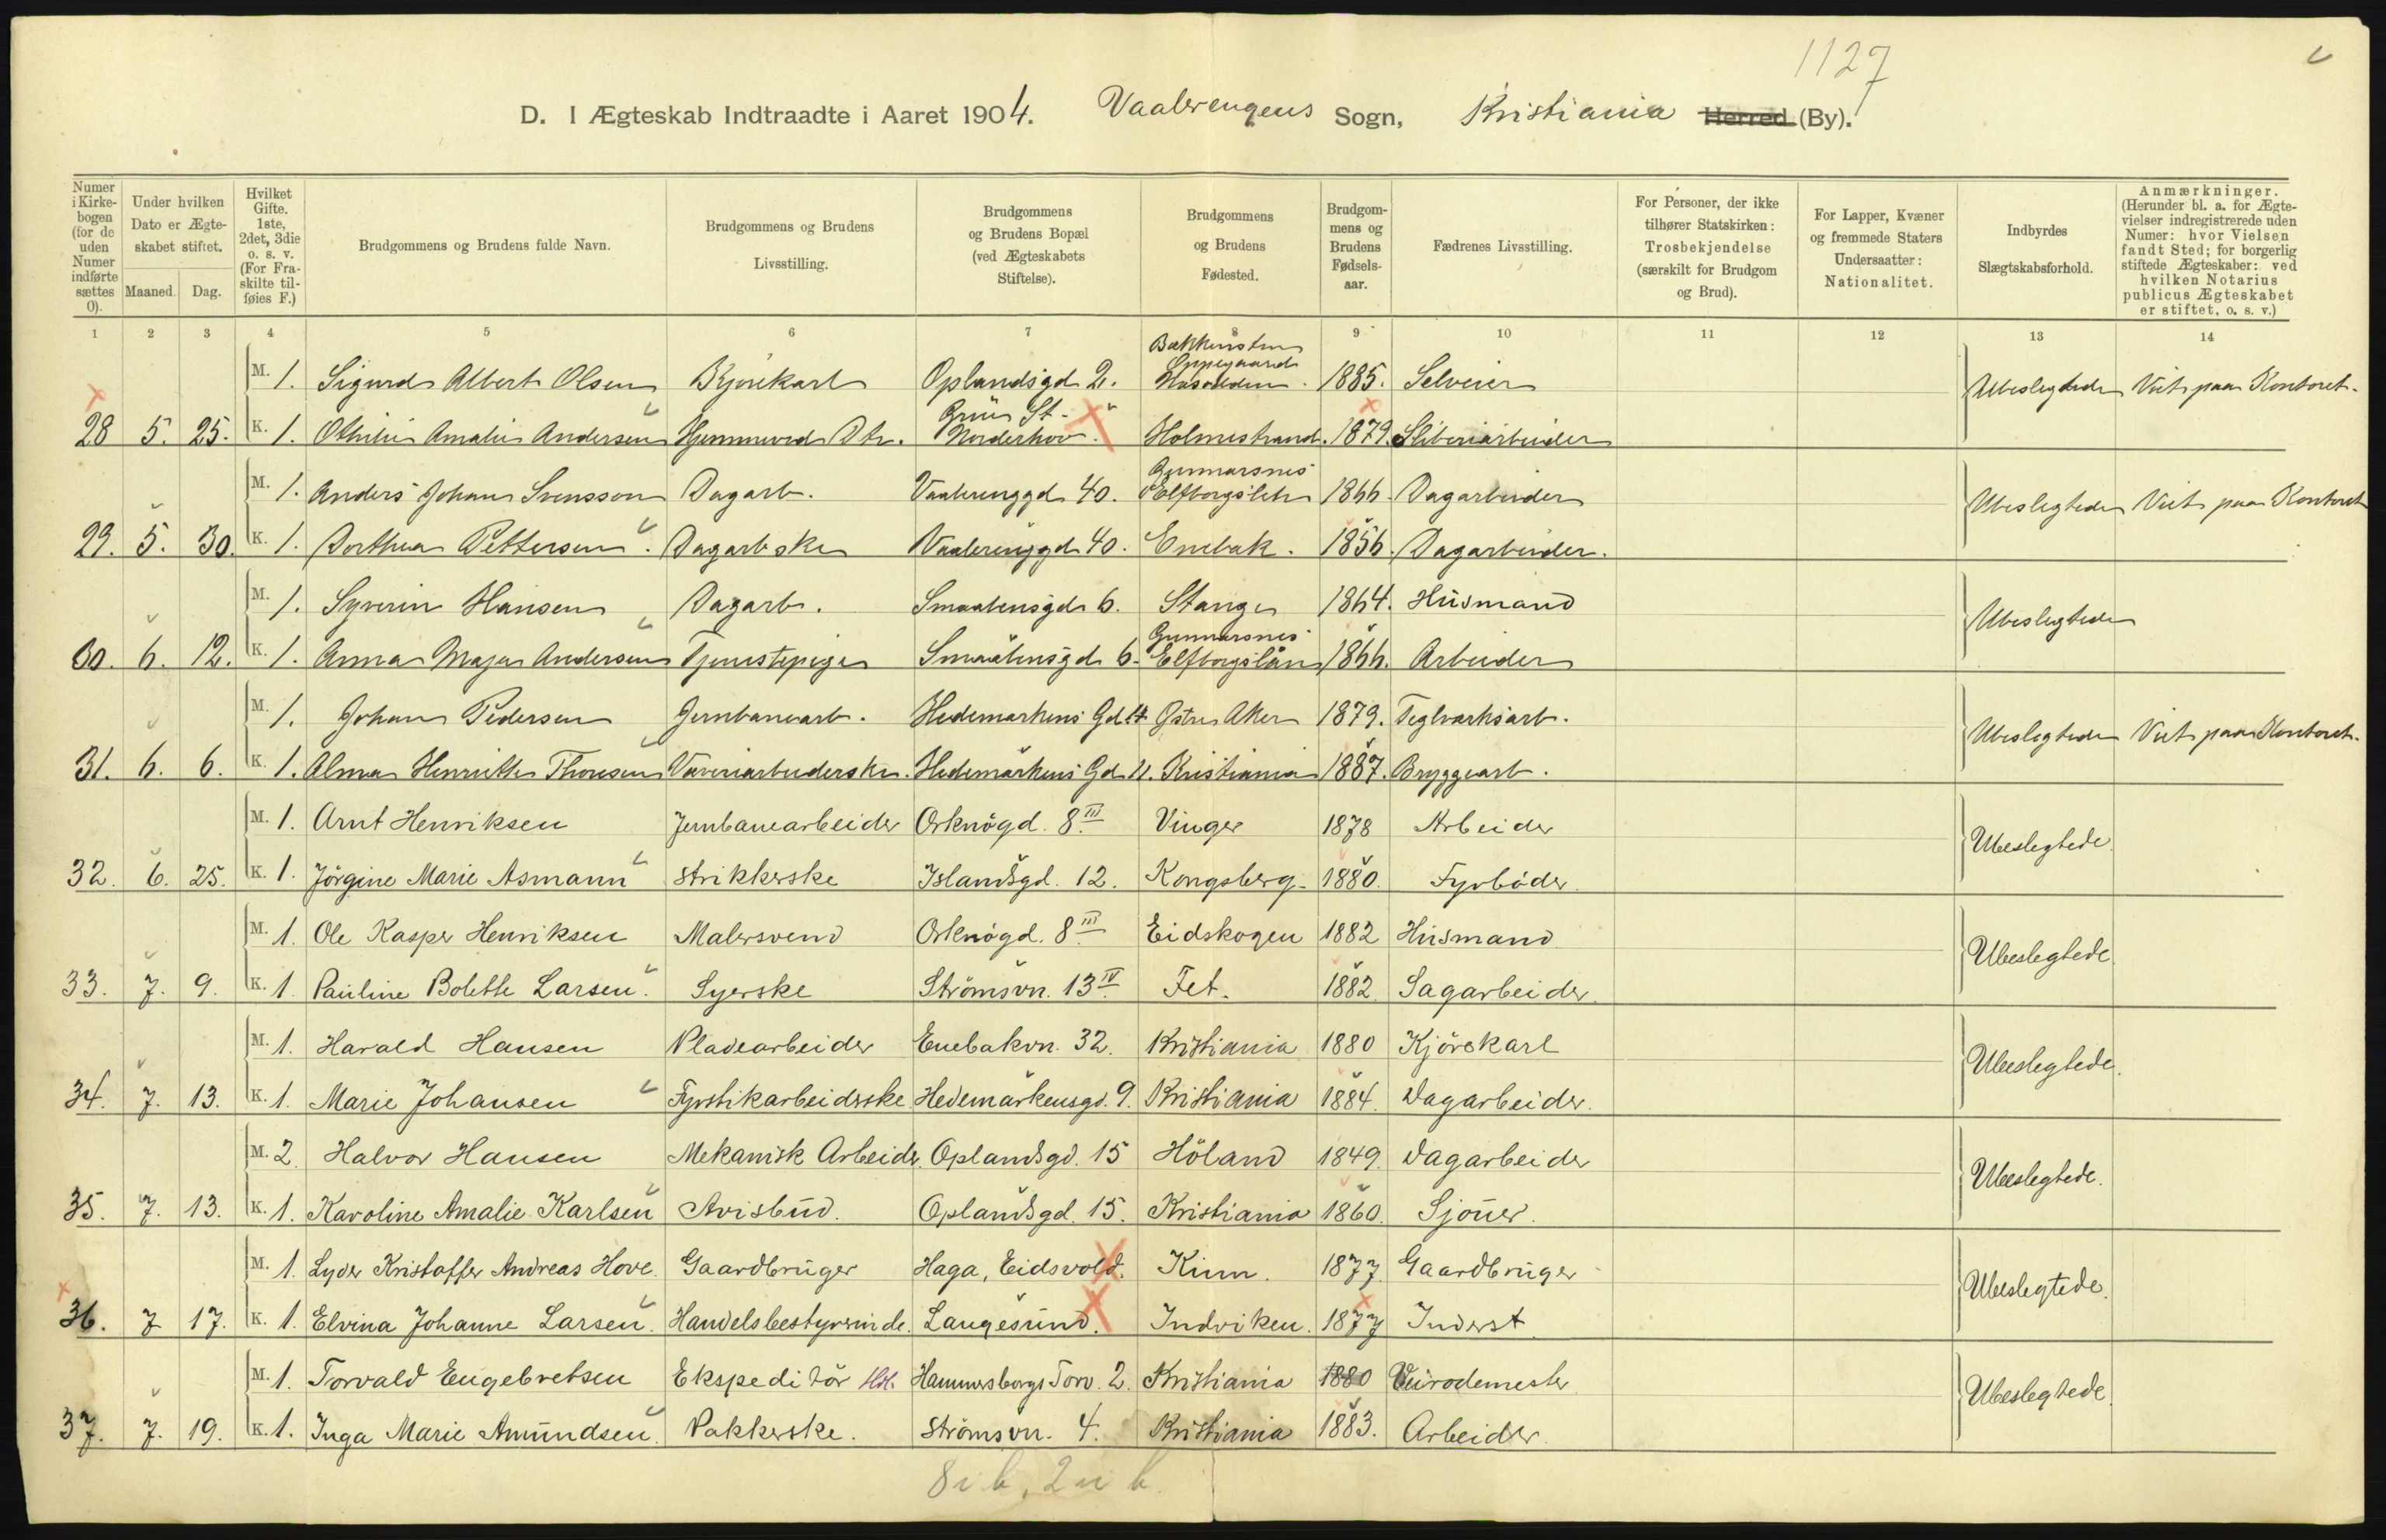 1127
D. I Ægteskab Indtraadte i Aaret 1904. Vaalerengens Sogn, Kristiania Herred (By).
Numer i Kirkebogen (for de uden Numer indførte sættes 0).
Under hvilken Dato er Ægteskabet stiftet.
Maaned. Dag.
Hvilket Gifte. 1ste, 2det, 3die o. s. v. (For Fraskilte tilføies F.)
Brudgommens og Brudens fulde Navn.
Brudgommens og Brudens Livsstilling.
Brudgommens og Brudens Bopæl (ved Ægteskabets Stiftelse).
Brudgommens og Brudens Fødested.
Brudgommens og Brudens Fødselsaar.
Fædrenes Livsstilling.
For Personer, der ikke tilhører Statskirken: Trosbekjendelse (særskilt for Brudgom og Brud).
For Lapper, Kvæner og fremmede Staters Undersaatter: Nationalitet.
Indbyrdes Slægtskabsforhold.
Anmærkninger. (Herunder bl. a. for Ægtevielser indregistrerede uden Numer: hvor Vielsen fandt Sted; for borgerlig stiftede Ægteskaber: ved hvilken Notarius publicus Ægteskabet er stiftet, o. s. v.)
1 2 3 4 5 6 7 8 9 10 11 12 13 14
M. 1. Sigurd Albert Olsen Kjørekarl Oplandsgd 2. 1885. Selveier Ubeslegtede Viet paa Kontoret.
28 5. 25. K. 1. Othilie Amalie Andersen Hjemmeværd Dtr. Norderhov. Holmestrand. 1879. Sliberiarbeider
M. 1. Anders Johan Svensson Dagarb. Vaalerenggd 40. Gunnarsnes Elfborgslehn 1866. Dagarbeider Ubeslegtede Viet paa Kontoret
29. 5. 30. K. 1. Dorthea Pettersen. Dagarbske Vaalerenggd 40. Enebak. 1856. Dagarbeider.
M. 1. Syverin Hansen Dagarb. Smaalensgd 6. Stange 1864. Husmand Ubeslegtede
30. 6. 12. K. 1. Anna Maja Andersen Tjenestepige Smaalensgd 6. Gunnarsnes Elfborgslän 1866. Arbeider
M. 1. Johan Pedersen Jernbanearb. Hedemarkens Gd 14 Østre Aker 1879. Teglværksarb. Ubeslegtede Viet paa Kontoret.
31. 6. 6. K. 1. Alma Henriette Thoresen Væveriarbeiderske. Hedemarkens Gd 11. Kristiania 1887. Bryggearb.
M. 1. Arnt Henriksen Jernbanearbeider Orknögd. 8 III Vinger 1878 Arbeider Ubeslegtede.
32. 6. 25. K. 1. Jörgine Marie Asmann Strikkerske Islandsgd. 12. Kongsberg. 1880. Fyrböder.
M. 1. Ole Kasper Henriksen Malersvend Orknögd. 8 III Eidskogen 1882 Husmand Ubeslegtede.
33. 7. 9. K. 1. Pauline Bolette Larsen. Syerske Strömsvn. 13 IV Fet. 1882. Sagarbeider.
M. 1. Harald Hansen Pladearbeider Enebakvn. 32. Kristiania 1880 Kjörekarl Ubeslegtede.
34. 7. 13. K. 1. Marie Johansen Fyrstikarbeiderske Hedemarkensgd. 9. Kristiania 1884. Dagarbeider.
M. 2. Halvor Hansen Mekanisk Arbeider Oplandsgd. 15 Höland 1849. Dagarbeider Ubeslegtede.
35. 7. 13. K. 1. Karoline Amalie Karlsen Avisbud. Oplandsgd. 15. Kristiania 1860. Sjouer.
M. 1. Lyder Kristoffer Andreas Hove. Gaardbruger Haga, Eidsvold. Kinn. 1877. Gaardbruger Ubeslegtede.
36. 7 17. K. 1. Elvina Johanne Larsen. Handelsbestyrerinde. Langesund. Indviken. 1877 Inderst
M. 1. Torvald Engebretsen Ekspeditör Hdl. Hammersborgs Torv. 2. Kristiania 1880 Veirodemester Ubeslegtede.
37. 7. 19. K. 1. Inga Marie Amundsen. Pakkerske. Strömsvn. 4. Kristiania 1883. Arbeider.
8 i b, 2 u b.